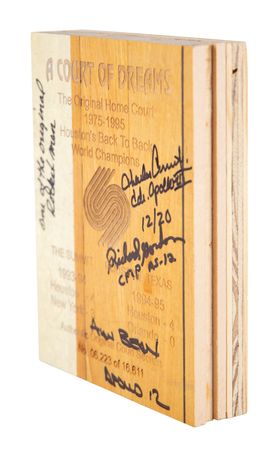 A COURT OF DREAMS
The Original Home Court
1975-1995
Houston's Back To Back
World Champions
one of the original
Rocket men
Charles Conrad Jr.
Cdr. Apollo XII
12/20
Richard Gordon
CMP AS-12
THE SUMMIT TEXAS
1993-94 1994-95
Houston Houston - 4
New York Orlando 0
Alan Bean
Authentic
No. 06,223 of 16,611
Apollo 12